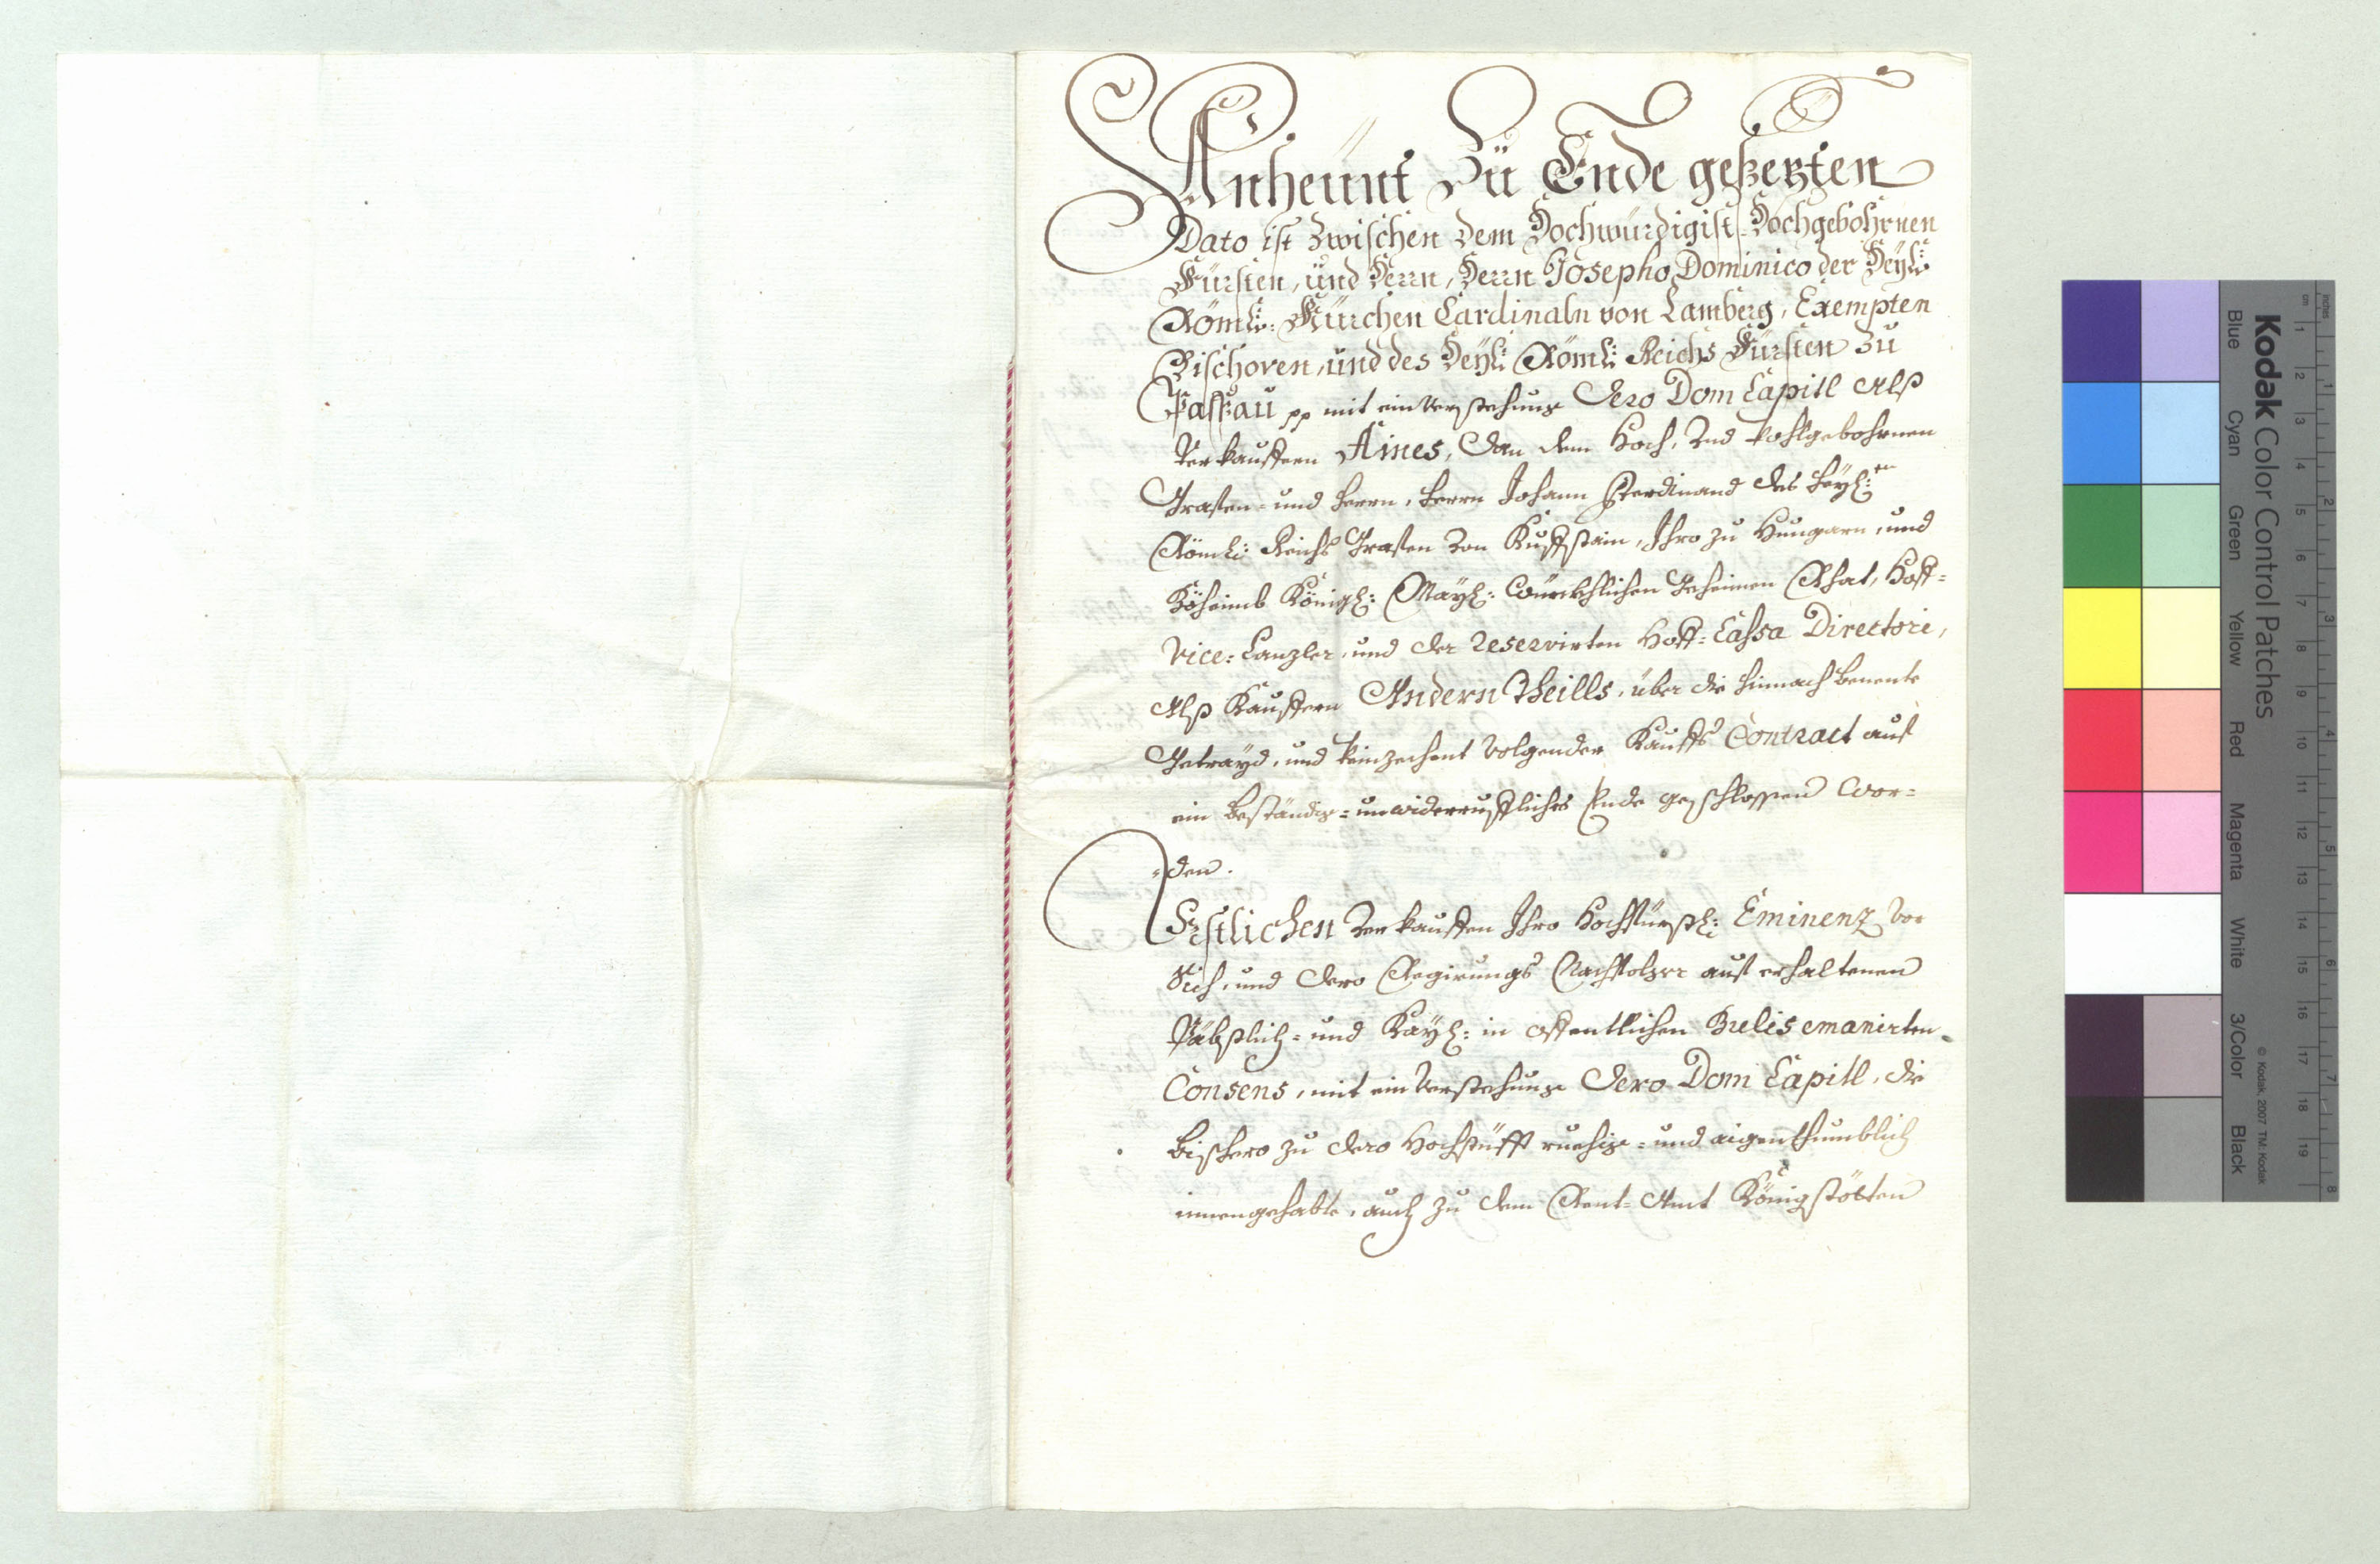 Anheunt Zu Ende geßezten
Dato ist Zwischen dem Hochwürdigist-Hochgebohrnen
Fürsten, und Herrn, Herrn Josepho Dominico der Heyl:
Röml: Kürchen Cardinaln von Lamberg, Exempten
Bischoven, und des Heyl: Röml: Reichs Fürsten Zu
Passau pp mit einverstehung Dero Dom Capitl Alß
Verkauffern Aines, Dan dem Hoch, und wohlgebohrnen
Grafen- und Herrn, Herrn Johann Ferdinand des Heyl:en
Röml: Reichs Grafen von Kuffstain, Ihro zu Hungarn, und
Böheimb Königl: Mayl: Würckhlichen Geheimen Rhat, Hoff-
Vice-Canzler, und der reservirten Hoff-Cassa Directore,
Alß Kauffern Andern Theills, über die hinnach benente
Getrayd, und Weinzechent volgender Kauffs Contract auf
ein beständig- unwiderruffliches Ende geschlossen Wor-
-den.
Erstlichen verkauffen Ihro Hochfürstl: Eminenz vor
Sich, und dero Regirungs Nachfolger auf erhaltenen
Päbstlich- und Kayl: in offentlichen Brelis emanirten
Consens, mit einverstehung Dero Dom Capitl, die
bishero zu dero Hochstüfft ruehig- und aigenthumblich
innengehabte, auch zu dem Rent-Amt Königstötten
Kodak Color Control Patches
Blue Cyan Green Yellow Red Magenta White 3/Color Black
© Kodak, 2007 TM: Kodak
inches 1 2 3 4 5 6 7 8
cm 1 2 3 4 5 6 7 8 9 10 11 12 13 14 15 16 17 18 19